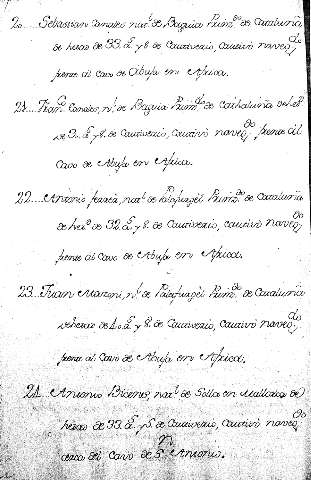 20.... Sebastian Cona⟨⟩ nat.l de Baguia Prinz.do de Cataluña
de heras de 33 a.s y 8 de Cautiverio, cautivó naveg.do
frente al Cavo de Abuja en Africa.
21.... Fran.co Conato, n.l de Baguia Prinz.do de Cathaluña de
de 3 a.s y 8 de Cautiverio, Cautivó naveg.do frente al
Cavo de Abuja en Africa.
22.... Antonio ferrer, nat.l de Palafugèl Prinz.do de Cataluña
de he.s de 32 a.s y 8 de Cautiverio, cautivó naveg.do
frente al Cavo de Abuja en Africa.
23.... Juan Maroni, n.l de Palafugèl Prinz.do de Cataluña
de heras de 40 a.s y 8 de Cautiverio, Cautivó naveg.do
frente al Cavo de Abuja en Africa.
24.... Antonio Bisens, nat.l de Solla en Mallorca de
heras de 33 a.s y 5 de Cautiverio, cautivó naveg.do
cerca del Cavo de S.n Antonio.